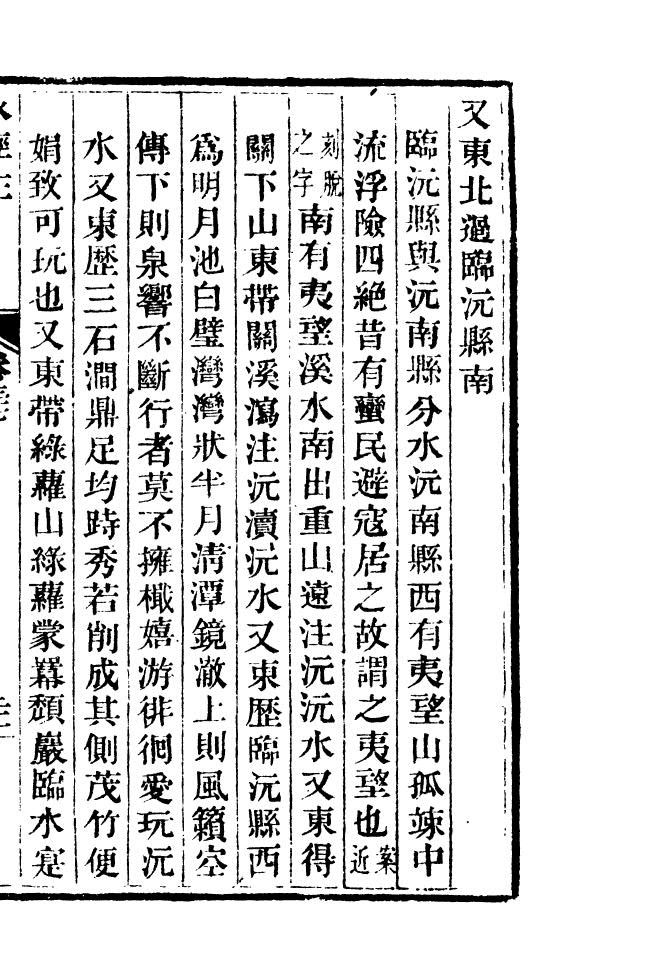 又東北過臨沅縣南
臨沅縣與沅南縣分水沅南縣西有夷望山孤竦中
流浮險四絕昔有蠻民避寇居之故謂之夷望也案近
刻脫之字南有夷望溪水南出重山遠注沅沅水又東得
關下山東帶關溪瀉注沅瀆沅水又東歷臨沅縣西
爲明月池白璧灣灣狀半月清潭鏡澈上則風籟空
傳下則泉響不斷行者莫不擁檝嬉游徘徊愛玩沅
水又東歷三石澗鼎足均跱秀若削成其側茂竹便
娟致可玩也又東帶綠蘿山綠蘿蒙羃頹巖臨水寔